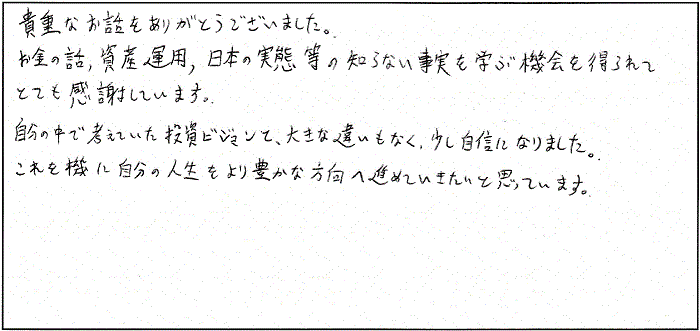 貴重なお話をありがとうございました。
お金の話,資産運用,日本の実態等の知らない事実を学ぶ機会を得られて
とても感謝しています。
自分の中で考えていた投資ビジョンと、大きな違いもなく,少し自信になりました。
これを機に自分の人生をより豊かな方向へ進めていきたいと思っています。